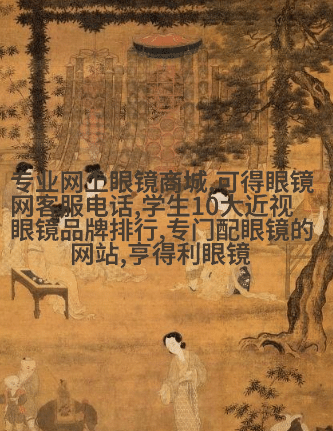 专业网上眼镜商城,可得眼镜
网客服电话,学生10大近视
眼镜品牌排行,专门配眼镜的
网站,亨得利眼镜